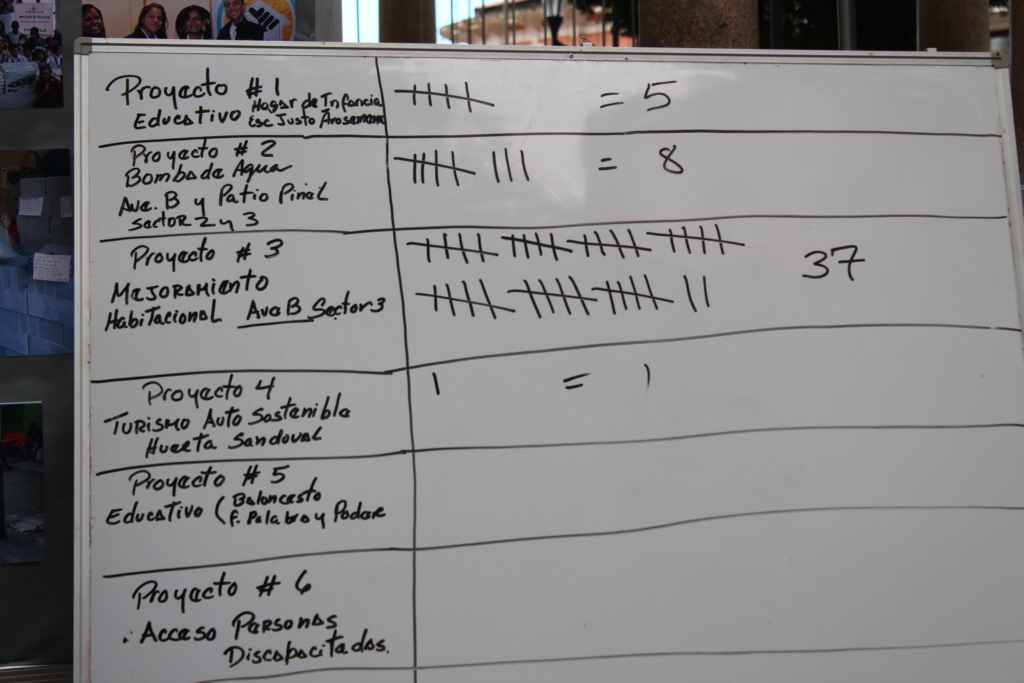 Proyecto # 1
Educativo Hogar de Infancia
Esc Justo Arosemena
= 5
Proyecto # 2
Bomba de Agua
Ave. B y Patio Pinel
Sector 2 y 3
= 8
Proyecto # 3
Mejoramiento
Habitacional Ave B Sector 3
37
Proyecto 4
Turismo Auto Sostenible
Huerta Sandoval
1 = 1
Proyecto # 5
Educativo (Baloncesto
F. Palabra y Poder
Proyecto # 6
. Acceso Personas
Discapacitados.